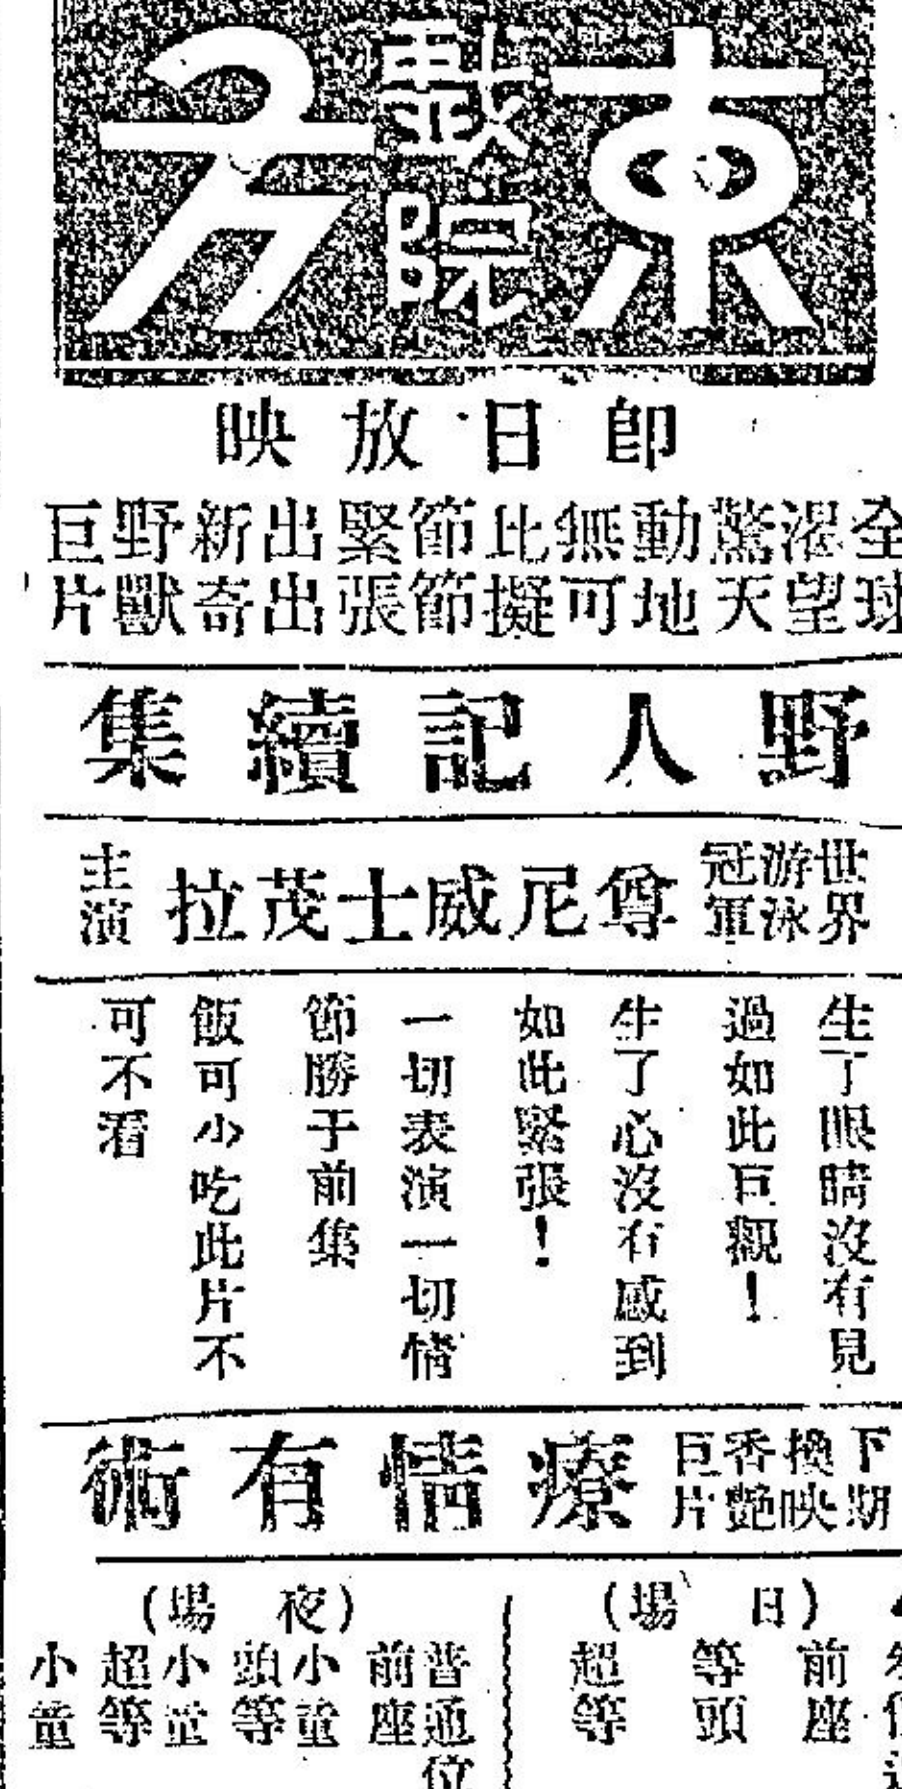 東方戲院
即日放映
全球渴望
驚天動地
無可比擬
節節緊張
出出新奇
野獸巨片
野人記續集
世界游泳冠軍
尊尼威士茂拉
主演
生了眼睛沒有見
過如此巨觀！
生了心沒有感到
如此緊張！
一切表演一切情
節勝于前集
飯可小吃此片不
可不看
下期換映香艷巨片
療情有術
（日場）
前座
等頭
超等
（夜場）
普通位
前座
小童
頭等
小童
超等
小童